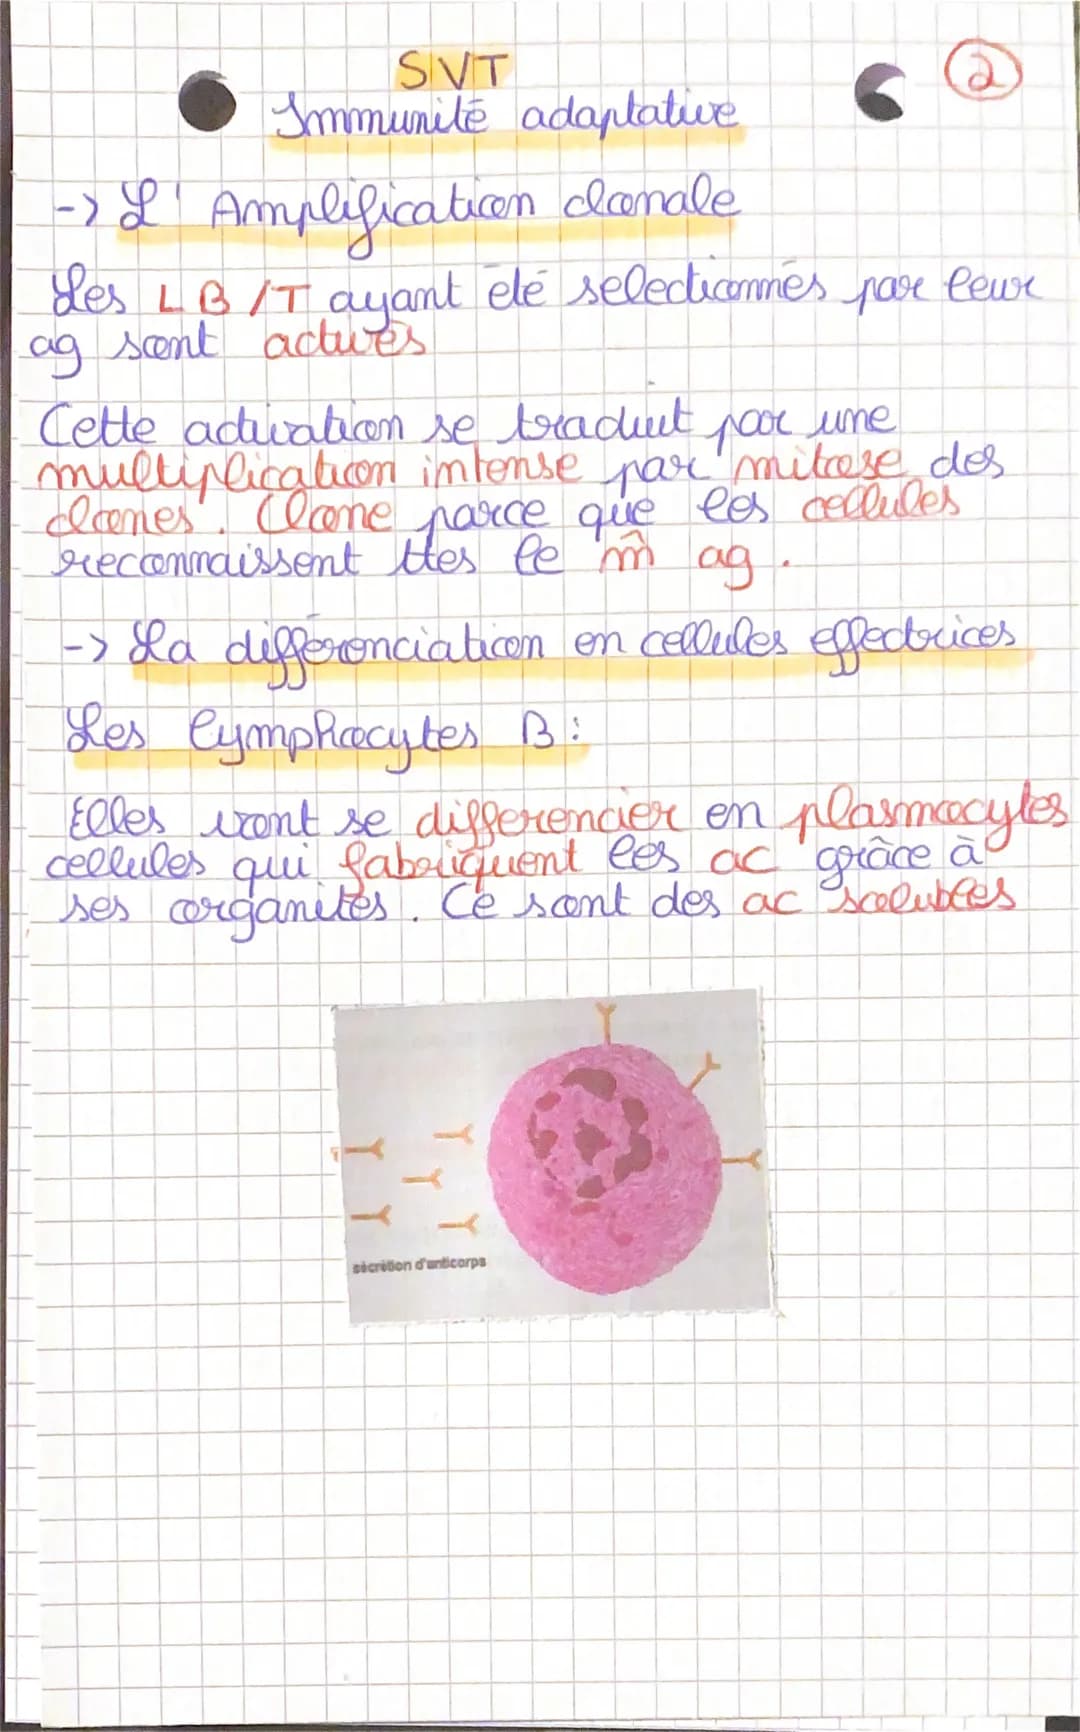 SVT
②
Immunité adaptative
-> L' Amplification clonale
Les LB/T ayant été selectionnés par leur
ag sont activés
Cette activation se traduit par une
multiplication intense par mitose des
clones. Clone parce que les cellules
reconnaissent ttes le m̂ ag.
-> La différenciation en cellules effectrices
Les lymphocytes B :
Elles vont se differencier en plasmocytes
cellules qui fabriquent les ac grâce à
ses organites. Ce sont des ac solubles
sécrétion d'anticorps